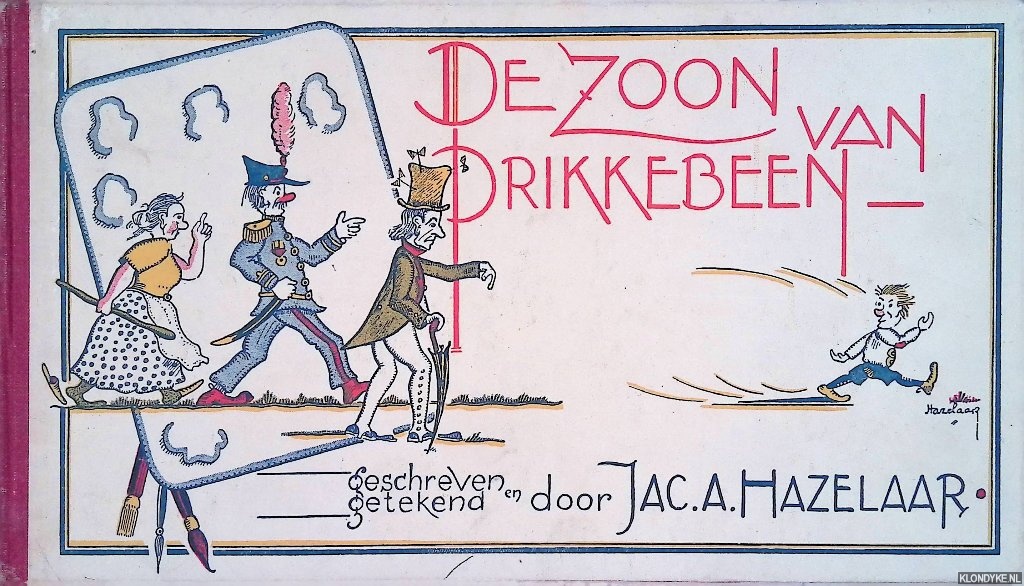 DE ZOON
VAN
PRIKKEBEEN
Hazelaar
geschreven
en
getekend
door JAC. A. HAZELAAR.
KLONDYKE.NL